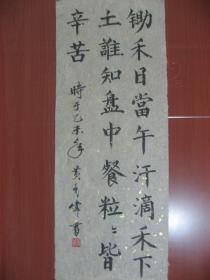 锄禾日當午汗滴禾下
土誰知盘中餐粒々皆
辛苦
時于乙未年